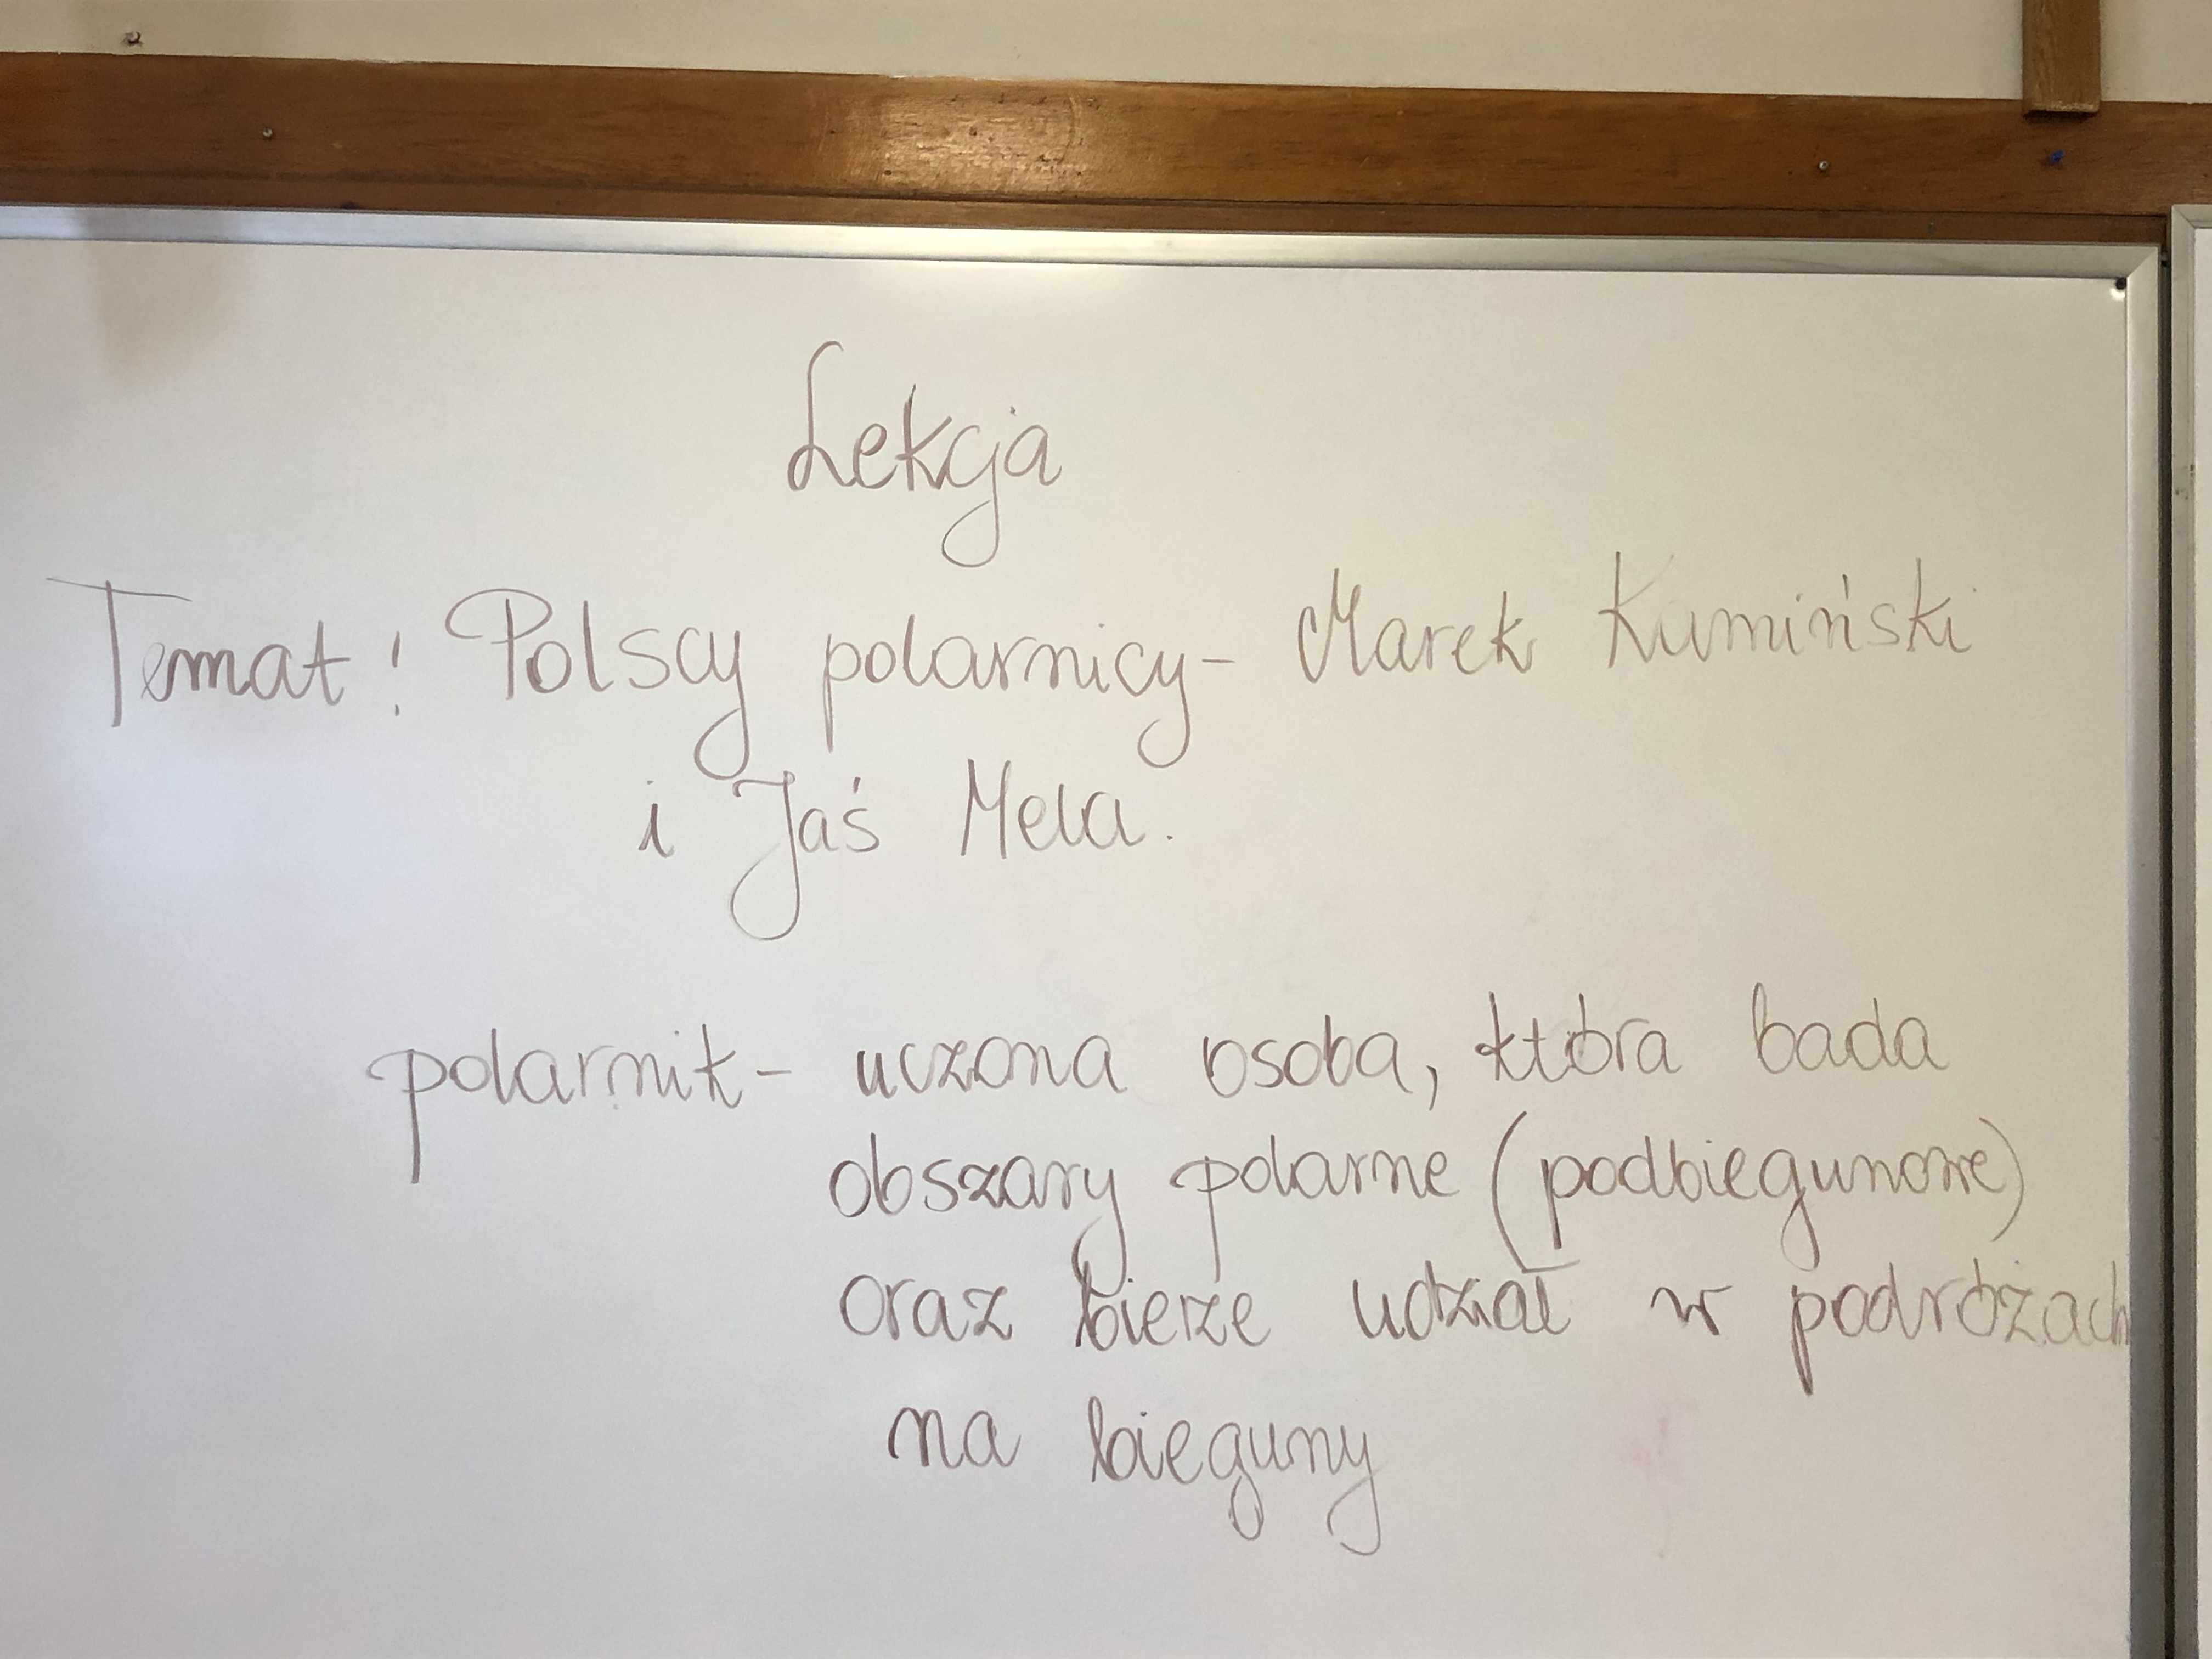 Lekcja
Temat: Polscy polarnicy - Marek Kamiński
i Jaś Mela.
polarnik - uczona osoba, która bada
obszary polarne (podbiegunowe)
oraz bierze udział w podróżach
na bieguny